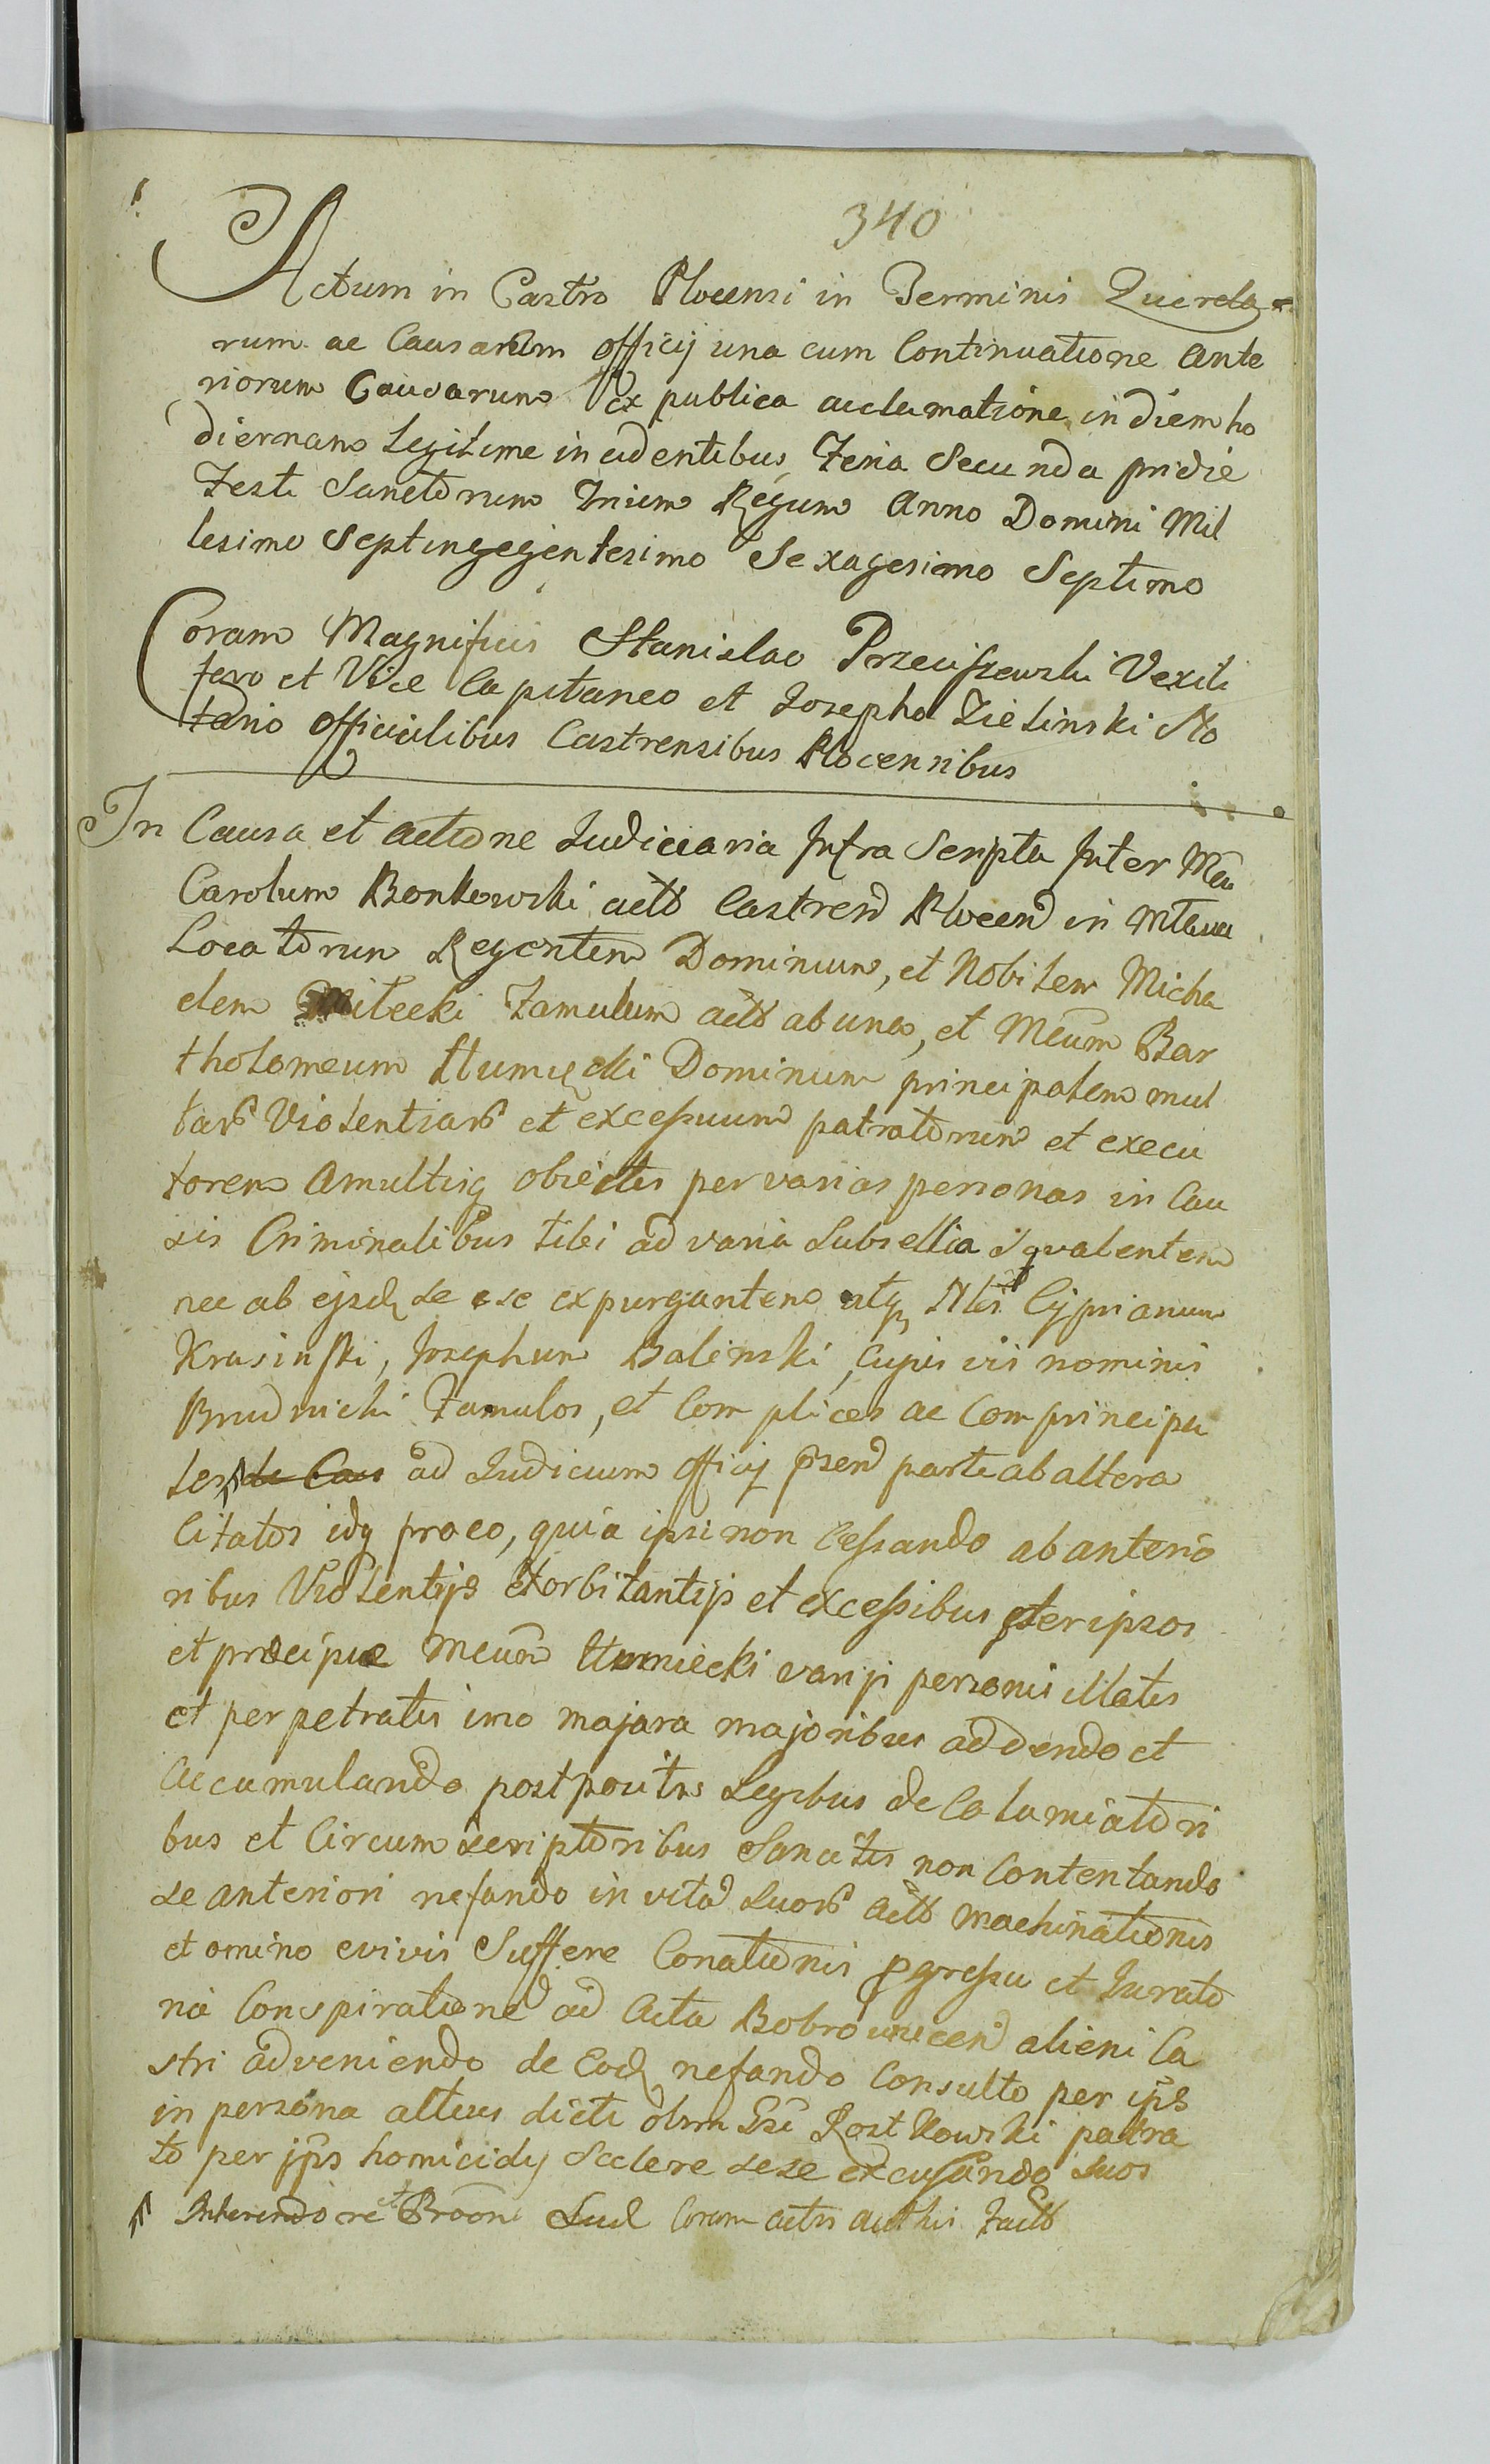 340
Actum in Castro Plocensi in Terminis Querela-
rum ac Causarum officij una cum Continuatione Ante
riorum Causarum ex publica acclamatione in diem ho
diernam legitime incidentibus, Feria Secunda pridie
Festi Sanctorum Trium Regum Anno Domini Mil
lesimo Septingegentesimo Sexagesimo Septimo
Coram Magnificis Stanislao Przeciszewski Vexili
fero et Vice Capitaneo et Josepho Zielinski No
tario officialibus Castrensibus Plocensibus
In Causa et actione Judiciaria Infra Scripta Inter Mcu
Carolum Bonkowski actŏ Castren Plocen in Mlava
Locatorum Regentem Dominum, et Nobilem Micha
elem Milecki Famulum actŏ ab una, et Mcum Bar
tholomeum Humięcki Dominum principalem mul
tarŏ Violentiarŏ et excessuum patratorum et execu
torem Amultisq obiectis per varias personas in Cau
sis Criminalibus tibi ad varia Subsellia
nec ab ejsd se ese expurgantem atq Nles Cyprianum
Krasinski, Josephum Balinski, cujus vis nominis
Brudnicki Famulos, et Complices ac Comprincipa
les de Caus ad Judicium officij psen parte ab altera
Citatos idq pro eo, quia ipsi non cessando ab anterio
ribus Violentijs exorbitantijs et excessibus pter ipsos
et præcipue Mcum Humiecki varijs personis illatis
et perpetratis imo majora majoribus addendo et
accumulando postpositis Legibus de Calumiatori
bus et Circumscriptoribus Sancitis non Contentando
se anteriori nefando in vita Suorŏ actŏ machinationis
et omino evivis Suffere Conationis pgressu et Jurato
na Conspiratione ad Acta Bobrownicen alieni Ca
stri adveniendo de Eod nefando Consulto per ips
in persona altius dicti olim Gsi Rostkowski patra
to per jps homicidij Scelere sese excusando suos
Inherendo re Proõni Sud Coram actis authis Factŏ